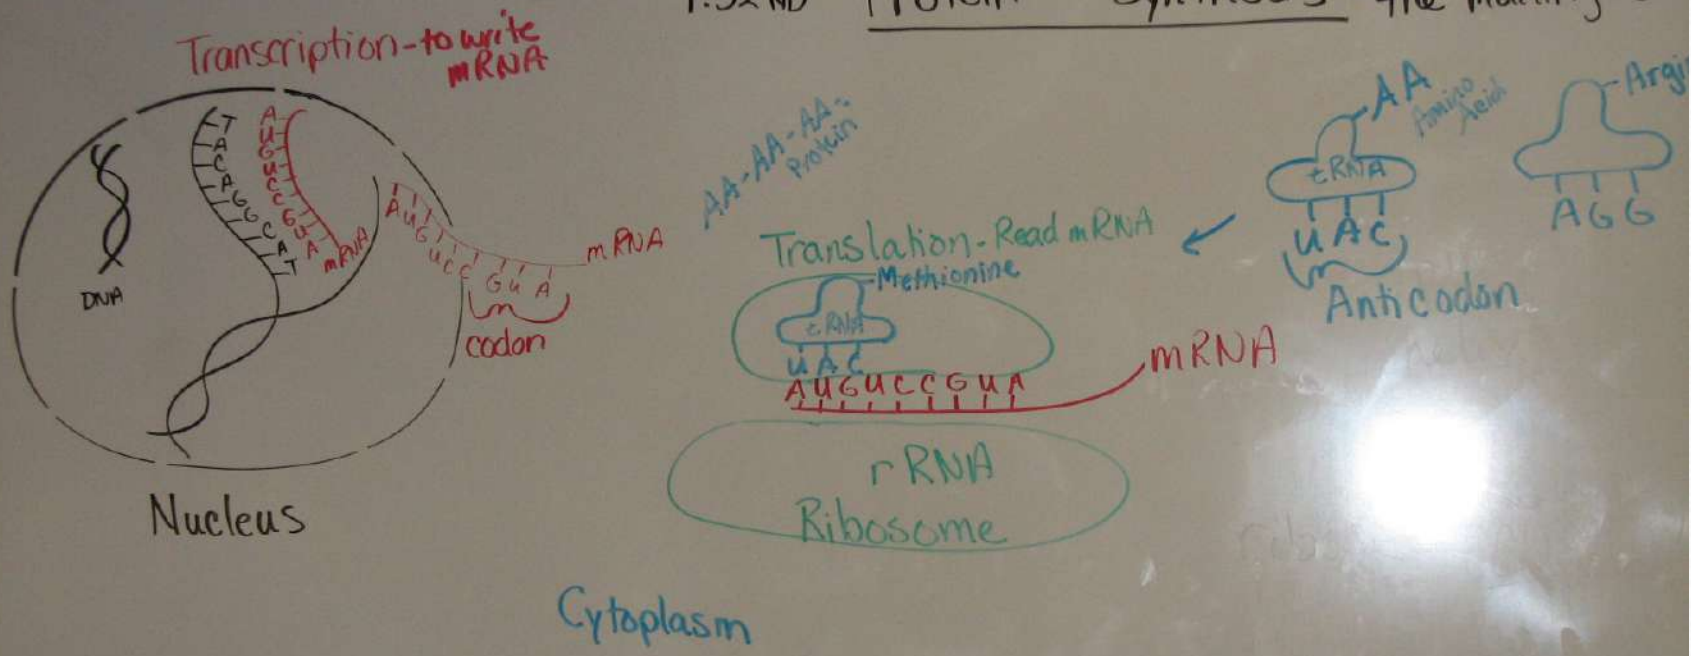 Protein Synthesis The
Transcription-to write
mRNA
T
A
C
A
G
G
C
A
T
A
U
G
U
C
C
G
U
A
mRNA
DNA
AUGUCC GUA
mRNA
codon
Nucleus
AA-AA-AA-
Protein
Translation-Read mRNA
Methionine
tRNA
UAC
AUGUCCGUA
mRNA
rRNA
Ribosome
Cytoplasm
AA
Amino
Acid
tRNA
UAC
Anticodon
AGG